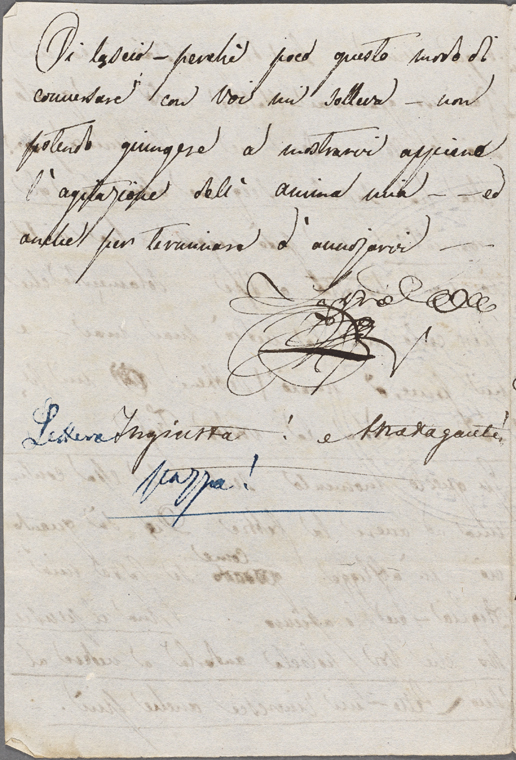 Vi lascio – perchè poco questo modo di
conversare con Voi mi solleva – non
potendo giungere a mostrarvi appieno
l'agitazione dell' anima mia – – ed
anche per terminare d' annojarvi –
Lettera Ingiusta ! e stravagante
pazza !